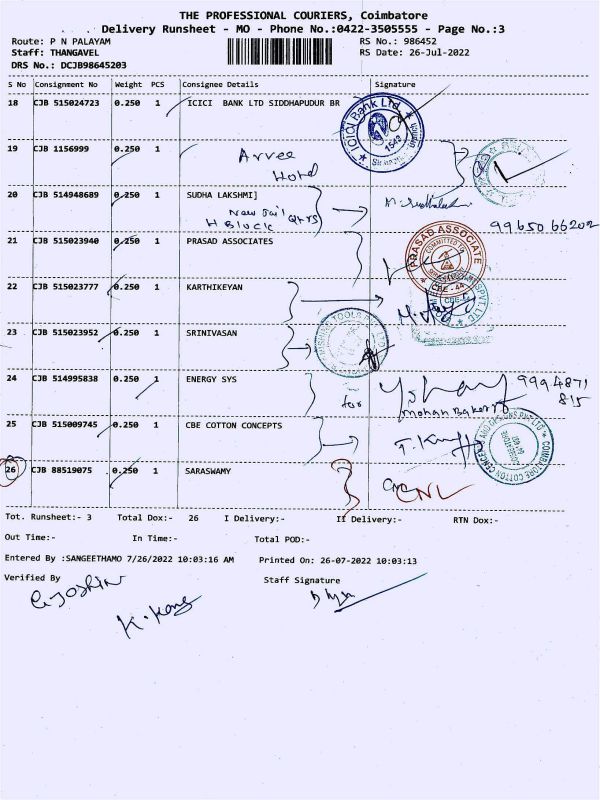 THE PROFESSIONAL COURIERS, Coimbatore
Delivery Runsheet - MO - Phone No.:0422-3505555 - Page No.:3
Route: P N PALAYAM RS No.: 986452
Staff: THANGAVEL RS Date: 26-Jul-2022
DRS No.: DCJB98645203
S No Consignment No Weight PCS Consignee Details Signature
18 CJB 515024723 0.250 1 ICICI BANK LTD SIDDHAPUDUR BR
ICICI Bank Ltd
1549
19 CJB 1156999 0.250 1
Arvee
Hotel
20 CJB 514948689 0.250 1 SUDHA LAKSHMI]
New Jail Qtrs
H Block
9965066202
21 CJB 515023940 0.250 1 PRASAD ASSOCIATES
PRASAD ASSOCIATE
COMMITTED TO
CBE - 44
22 CJB 515023777 0.250 1 KARTHIKEYAN
23 CJB 515023952 0.250 1 SRINIVASAN
TOOLS
24 CJB 514995838 0.250 1 ENERGY SYS
9994871
815
for
Mohan
25 CJB 515009745 0.250 1 CBE COTTON CONCEPTS
COIMBATORE COTTON CONCEPTS AND DESIGNS PVT LTD
COIMBATORE
641 037
26 CJB 88519075 0.250 1 SARASWAMY
CNL
Tot. Runsheet:- 3 Total Dox:- 26 I Delivery:- II Delivery:- RTN Dox:-
Out Time:- In Time:- Total POD:-
Entered By :SANGEETHAMO 7/26/2022 10:03:16 AM Printed On: 26-07-2022 10:03:13
Verified By Staff Signature
G JOSHIN